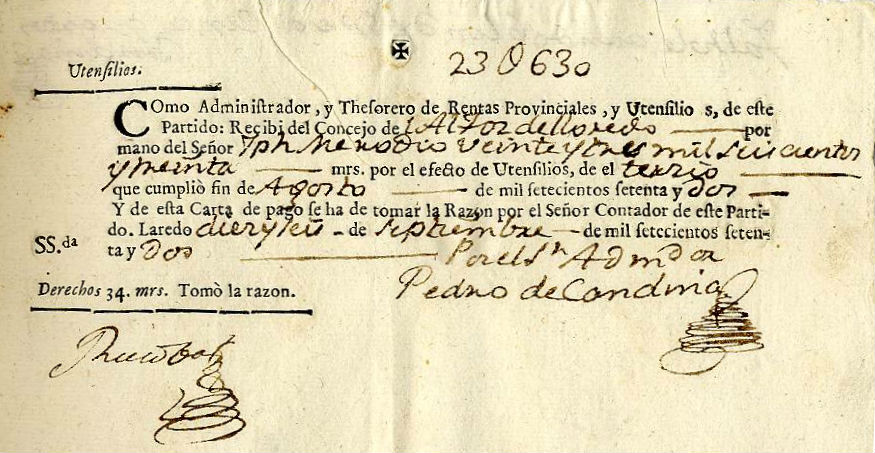 Utensilios.
23 U 630
COmo Administrador, y Thesorero de Rentas Provinciales, y Utensilio s, de este
Partido: Recibi del Concejo de l Alfoz de lloredo por
mano del Señor Jph Merodio Veinte y tres mil seiscientos
y treinta mrs. por el efecto de Utensilios, de el terzio
que cumpliò fin de Agosto de mil setecientos setenta y dos
Y de esta Carta de pago se ha de tomar la Razon por el Señor Contador de este Parti-
do. Laredo diez y seis de septiembre de mil setecientos seten-
SS.da
ta y Dos Por el Sr. Admdor
Pedro de Candina
Derechos 34. mrs. Tomò la razon.